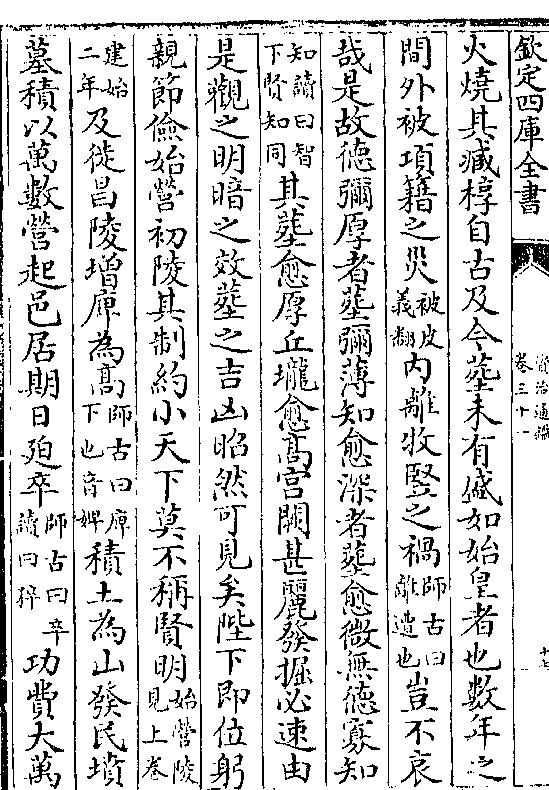 欽定四庫全書
資治通鑑
卷三十一
十七
火燒其臧椁自古及今塟未有盛如始皇者也數年之
間外被項籍之災被皮義翻内離牧豎之禍師古曰離遭也豈不哀
哉是故德彌厚者塟彌薄知愈深者塟愈微無德寡知
知讀曰智下賢知同其塟愈厚丘壠愈髙宫闕甚麗發掘必速由
是觀之明暗之效塟之吉凶昭然可見矣陛下即位躬
親節儉始營初陵其制約小天下莫不稱賢明始營陵見上卷
建始二年及徙昌陵增庳為髙師古曰庳下也音婢積土為山發民墳
墓積以萬數營起邑居期日廹卒師古曰卒讀曰猝功費大萬